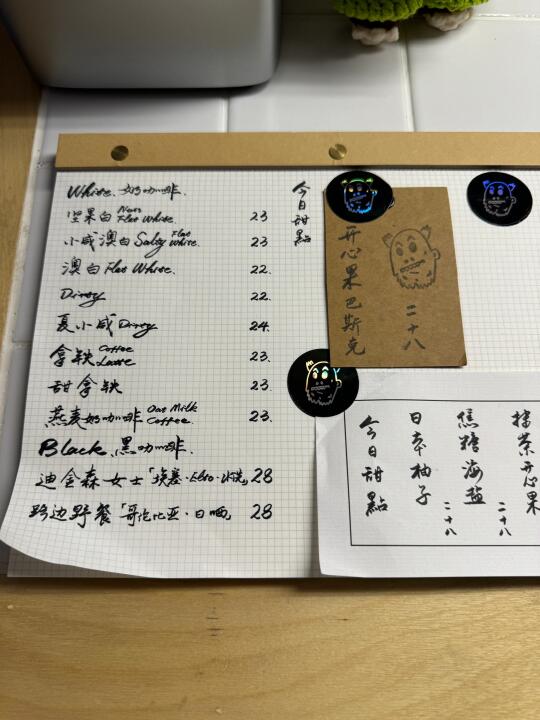 White. 奶咖啡.
坚果白 Nan Flat White. 23
小咸澳白 Salty Flat White. 23
澳白 Flat White. 22.
Dirty 22.
夏小咸 Dirty 24.
拿铁 Coffee Latte 23.
甜拿铁 23.
燕麦奶咖啡 Oat Milk Coffee. 23.
Black. 黑咖啡.
迪金森女士「埃塞·水洗 28
路边野餐「哥伦比亚·日晒」 28
今日甜點
开心果巴斯克
二十八
抹茶开心果
焦糖海盐
二十八
日本柚子
二十八
今日甜點